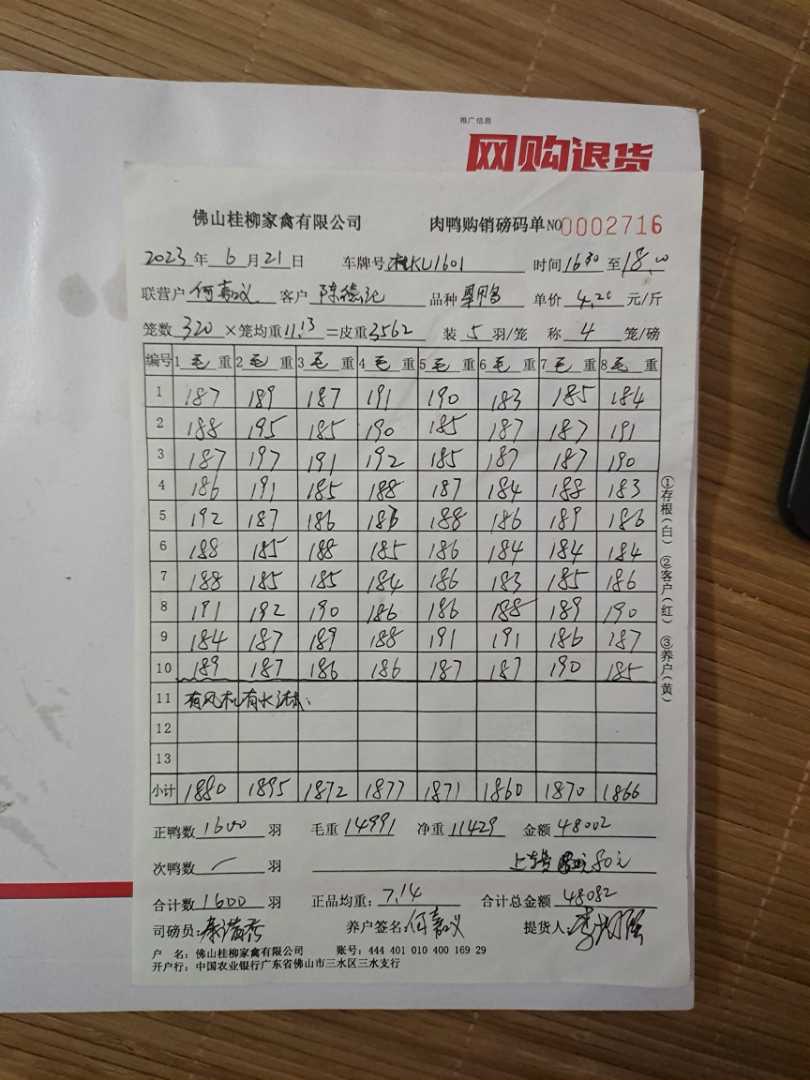 推广信息
网购退货
佛山桂柳家禽有限公司 肉鸭购销磅码单 NO 0002716
2023 年 6 月 21 日 车牌号 KU1601 时间 1630 至 18.00
联营户 何嘉议 客户 陈德记 品种 单价 4.20 元/斤
笼数 320 ×笼均重 11.13 =皮重 3562 装 5 羽/笼 称 4 笼/磅
编号 1 毛 重 2 毛 重 3 毛 重 4 毛 重 5 毛 重 6 毛 重 7 毛 重 8 毛 重
1 187 189 187 191 190 183 185 184
2 188 195 185 190 185 187 187 191
3 187 197 191 192 185 187 187 190
4 186 191 185 188 187 184 188 183
5 192 187 186 186 188 186 189 186
6 188 185 188 185 186 184 184 184
7 188 185 185 184 186 183 185 186
8 191 192 190 186 186 188 189 190
9 184 187 189 188 191 191 186 187
10 189 187 186 186 187 187 190 185
11 有风机有水淋
12
13
小计 1880 1895 1872 1877 1871 1860 1870 1866
①存根(白) ②客户(红) ③养户(黄)
正鸭数 1600 羽 毛重 14991 净重 11429 金额 48002
次鸭数 / 羽 上车费 80元
合计数 1600 羽 正品均重: 7.14 合计总金额 48082
司磅员: 养户签名: 何嘉议 提货人:
户 名: 佛山桂柳家禽有限公司 账号: 444 401 010 400 169 29
开户行: 中国农业银行广东省佛山市三水区三水支行